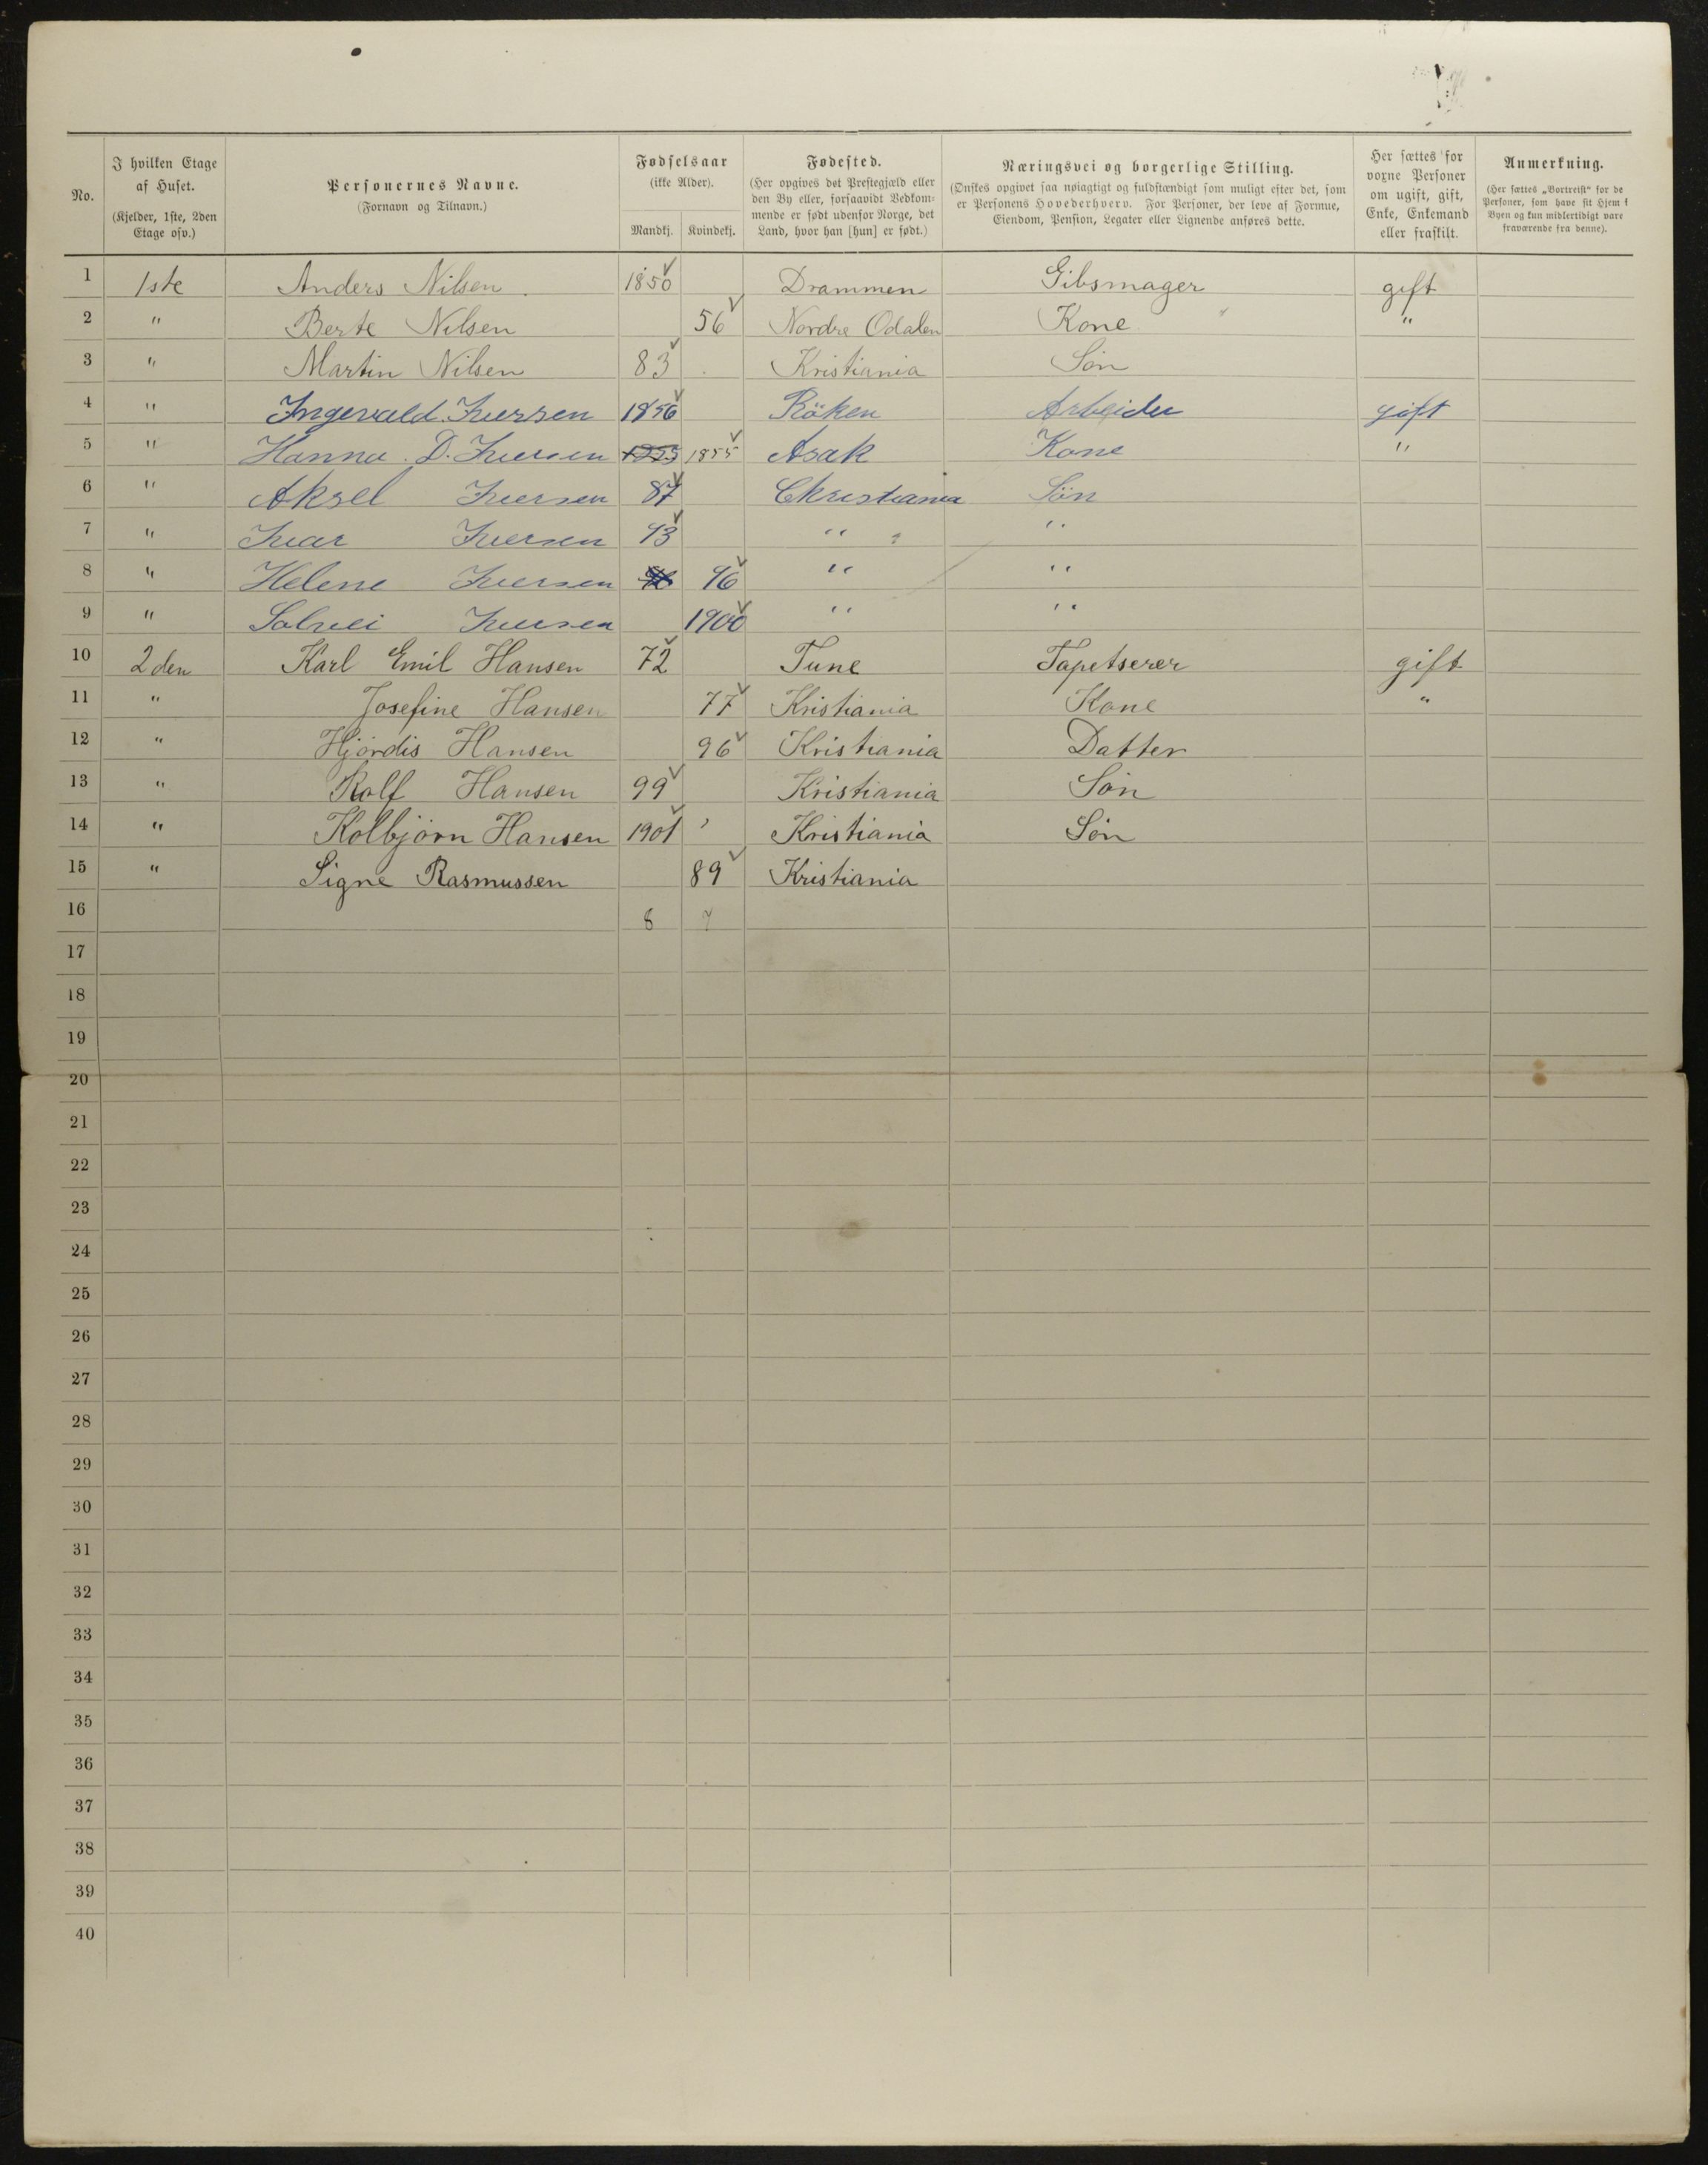 No.
I hvilken Etage af Huset.
(Kjelder, 1ste, 2den Etage osv.)
Personernes Navne.
(Fornavn og Tilnavn.)
Fødselsaar
(ikke Alder).
Mandkj. Kvindekj.
Fødested.
(Her opgives det Prestegjæld eller
den By eller, forsaavidt Vedkom-
mende er født udenfor Norge, det
Land, hvor han [hun] er født.)
Næringsvei og borgerlige Stilling.
(Ønskes opgivet saa nøiagtigt og fuldstændigt som muligt efter det, som
er Personens Hovederhverv. For Personer, der leve af Formue,
Eiendom, Pension, Legater eller Lignende anføres dette.
Her sættes for
voxne Personer
om ugift, gift,
Enke, Enkemand
eller fraskilt.
Anmerkning.
(Her sættes „Bortreist“ for de
Personer, som have sit Hjem i
Byen og kun midlertidigt vare
fraværende fra denne).
1 1ste Anders Nilsen 1850 Drammen Gibsmager gift
2 " Berte Nilsen 56 Nordre Odalen Kone "
3 " Martin Nilsen 83 Kristiania Søn
4 " Ingevald Iversen 1856 Röken Arbeider gift
5 " Hanna D. Iversen 1855 Asak Kone "
6 " Aksel Iversen 87 Christiania Sön
7 " Ivar Iversen 93 " "
8 " Helene Iversen 96 " "
9 " Solvei Iversen 1900 " "
10 2den Karl Emil Hansen 72 Tune Tapetserer gift
11 " Josefine Hansen 77 Kristiania Kone "
12 " Hjørdis Hansen 96 Kristiania Datter
13 " Rolf Hansen 99 Kristiania Søn
14 " Kolbjørn Hansen 1901 Kristiania Søn
15 " Signe Rasmussen 89 Kristiania
16 8 7
17
18
19
20
21
22
23
24
25
26
27
28
29
30
31
32
33
34
35
36
37
38
39
40